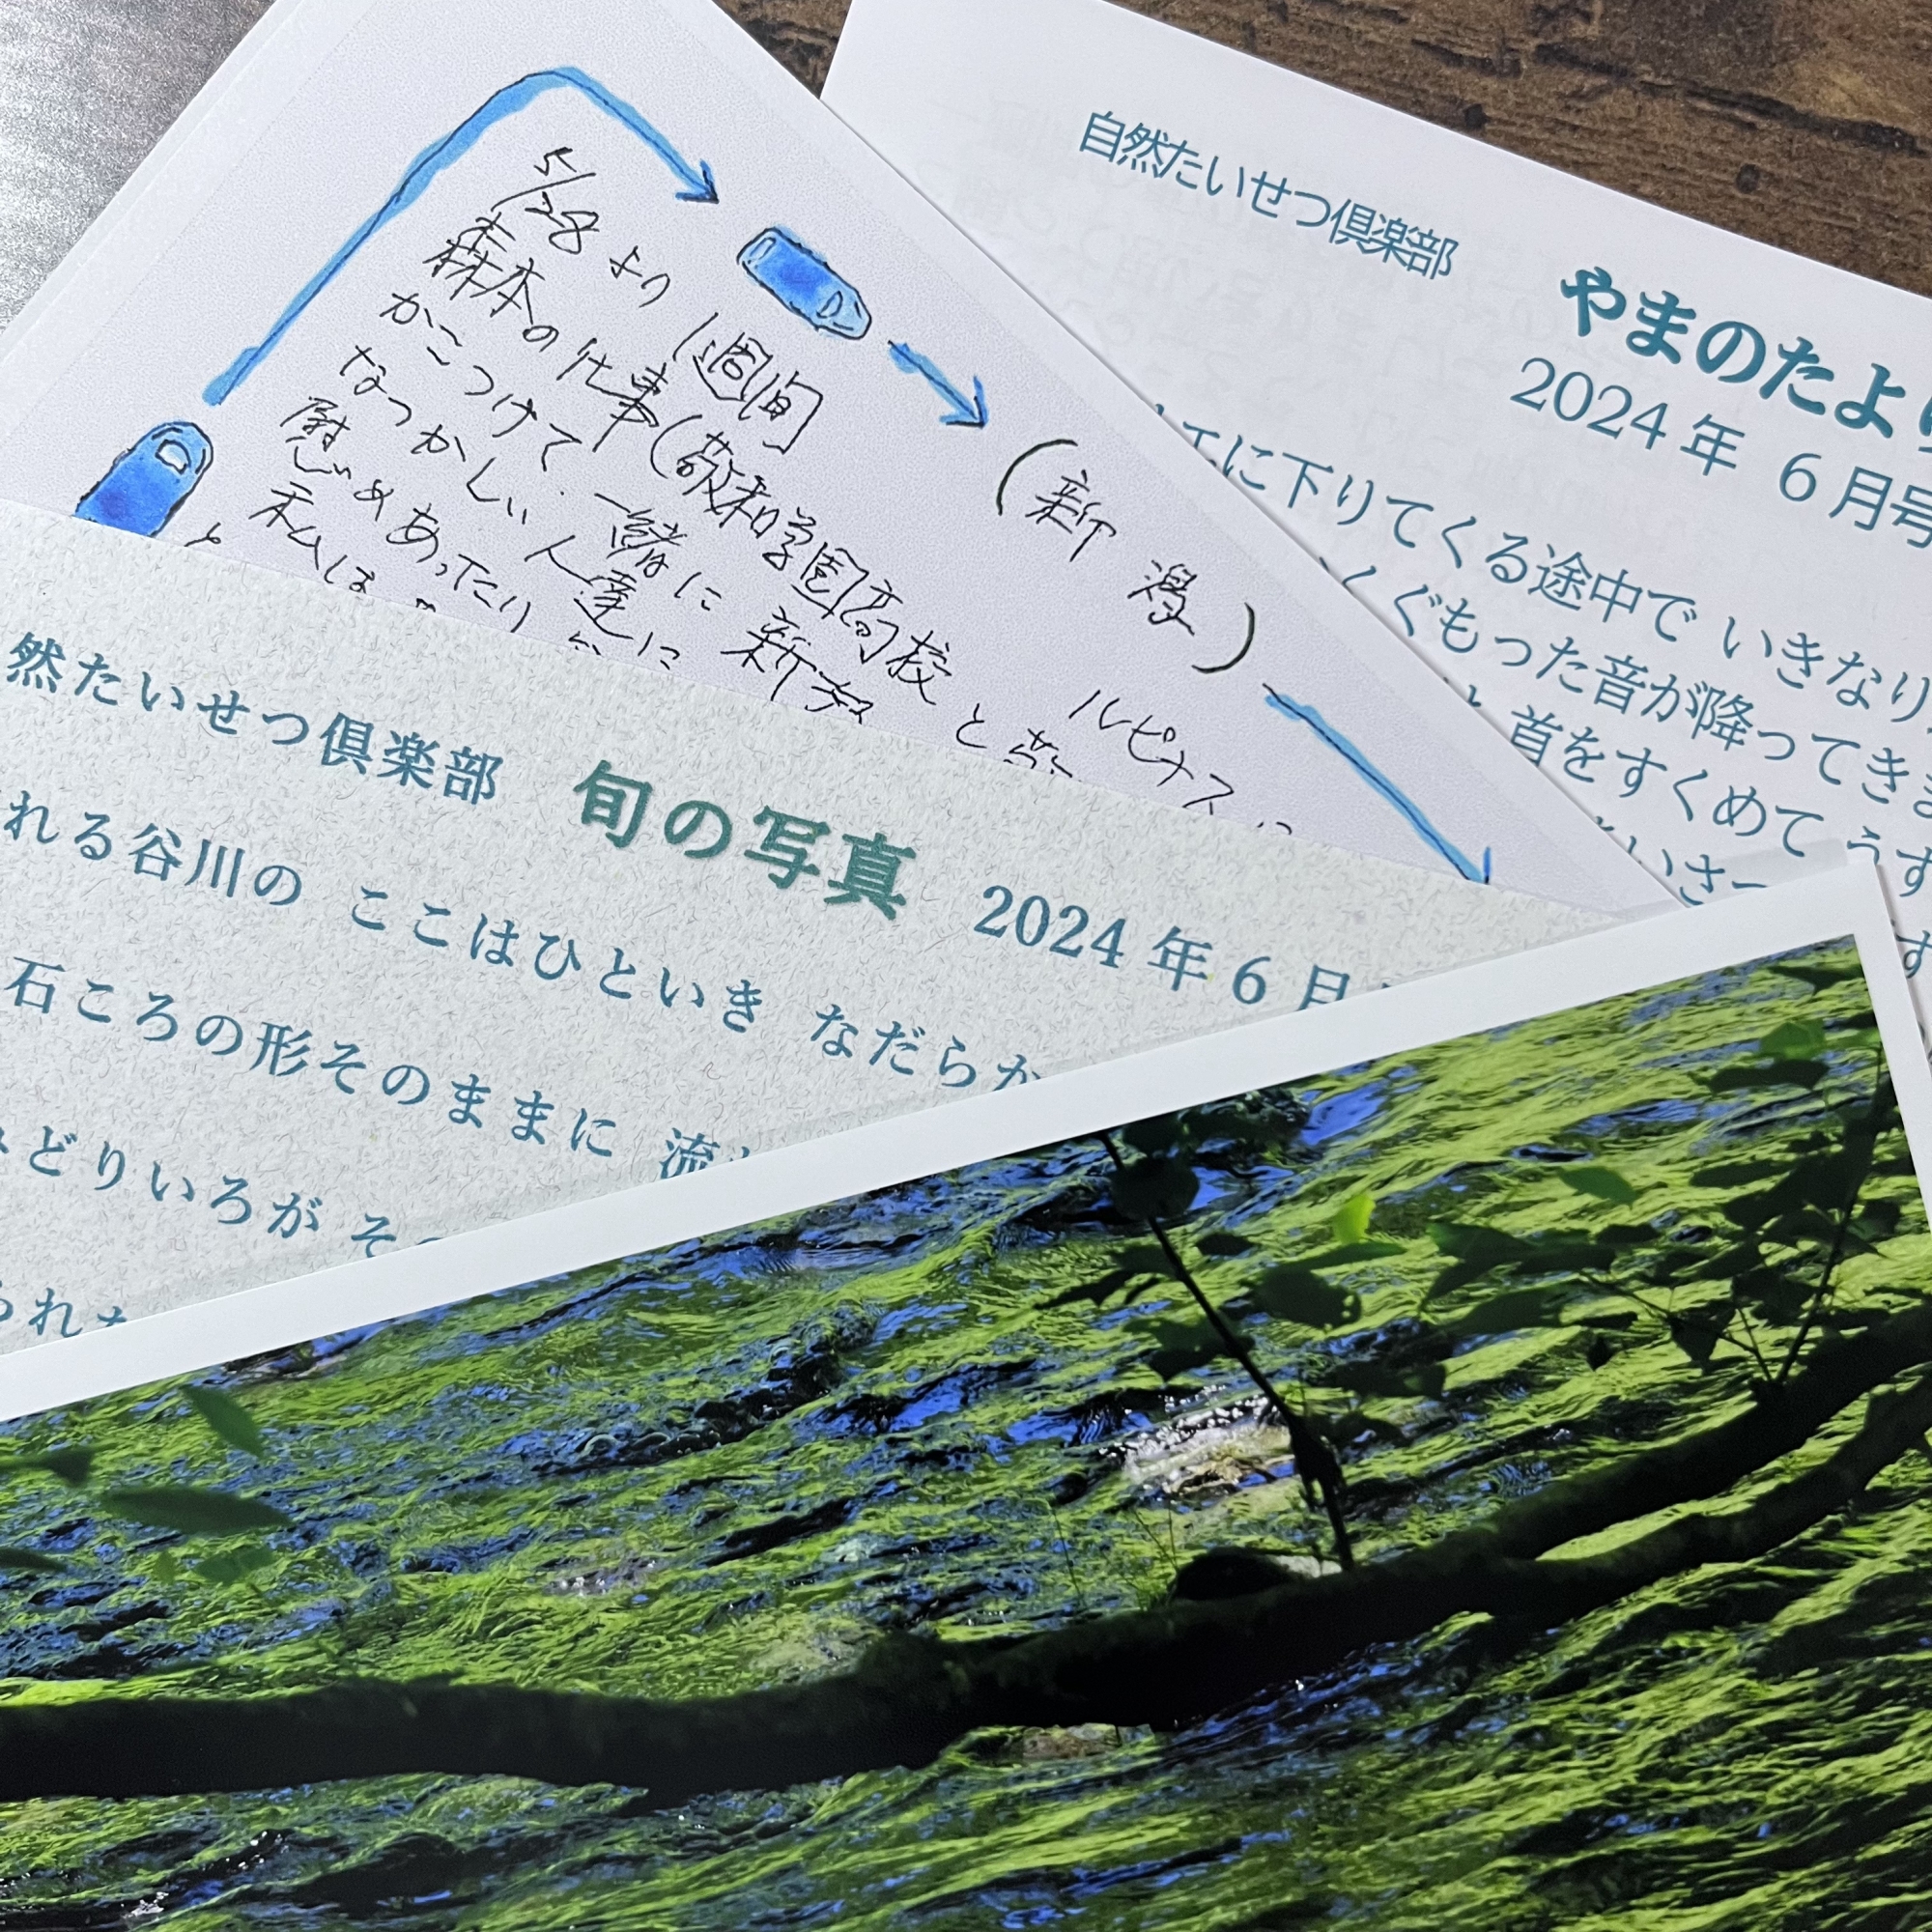 自然たいせつ倶楽部
やまのたより
2024 年 6 月号
に下りてくる途中で いきなり
くぐもった音が降ってきま
首をすくめて うす
いさっ
す
5/28 より 1週間
森本の仕事(敬和学園高校
かこつけて 一緒に 新
なつかしい人達に
慰めあったり
私は
(新潟)
ルピナス
と
然たいせつ倶楽部 旬の写真 2024 年 6 月
れる谷川の ここはひといき なだらか
石ころの形そのままに 流
みどりいろが そ
られた